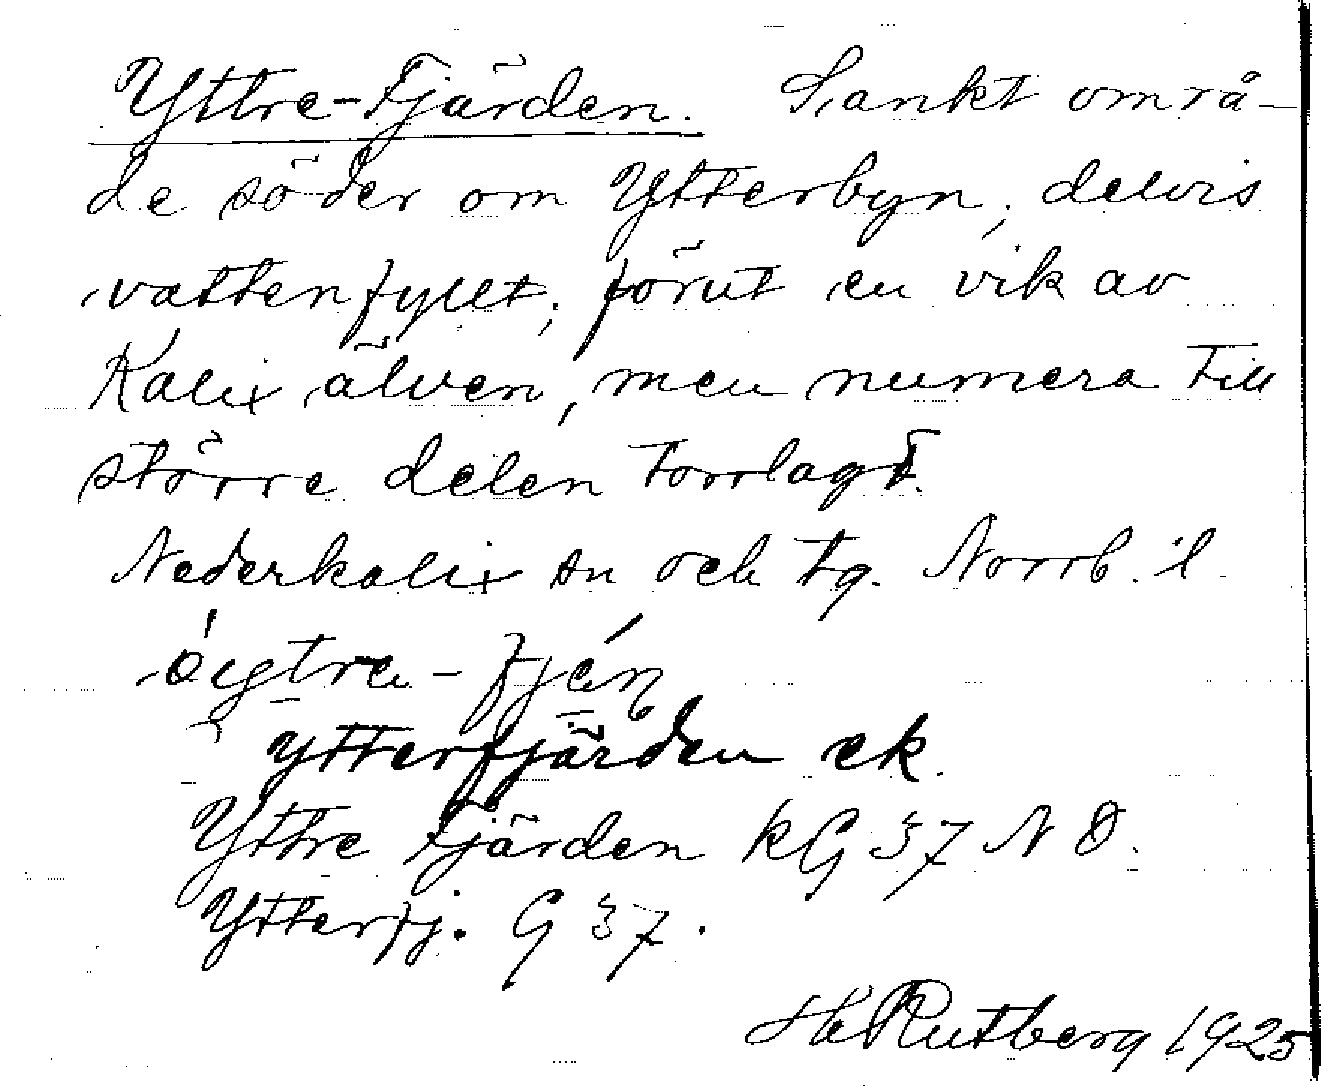 Yttre-Fjärden. Sankt områ-
de söder om Ytterbyn; delvis
vattenfyllt; förut en vik av
Kalix älven, men numera till
större delen torrlagt.
Nederkalix sn och tg. Norrb. l.
Ytterfjärden ek.
Yttre Fjärden kG 37 N O.
Ytterfj. G 37.
Rutberg 1925